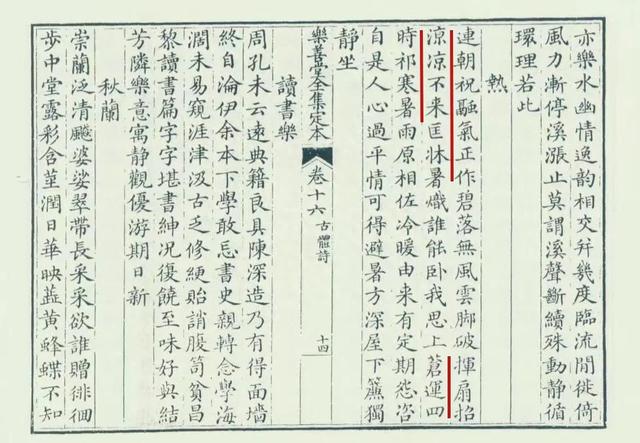 亦樂水幽情逸韵相交幷幾度臨流閒徙倚
風力漸停溪漲止莫謂溪聲斷續殊動靜循
環理若此
熱
連朝祝融氣正作碧落無風雲脚破揮扇招
凉凉不来匡牀暑熾誰能卧我思上蒼運四
時祁寒暑雨原相佐冷暖由来有定期怨咨
自是人心過平情可得避暑方深屋下簾獨
靜坐
讀書樂
樂善堂全集定本
卷十六
古體詩
十四
周孔未云遠典籍良具陳深造乃有得面墻
終自淪伊余本下學敢忘書史親轉念學海
濶未易窺涯津汲古乏修綆貽誚腹笥貧昌
黎讀書篇字字堪書紳况復饒至味好與結
芳隣樂意寓静觀優游期日新
秋蘭
崇蘭泛清飈婆娑翠帶長采采欲誰贈徘徊
步中堂露彩含莖潤日華映蕋黄蜂蝶不知